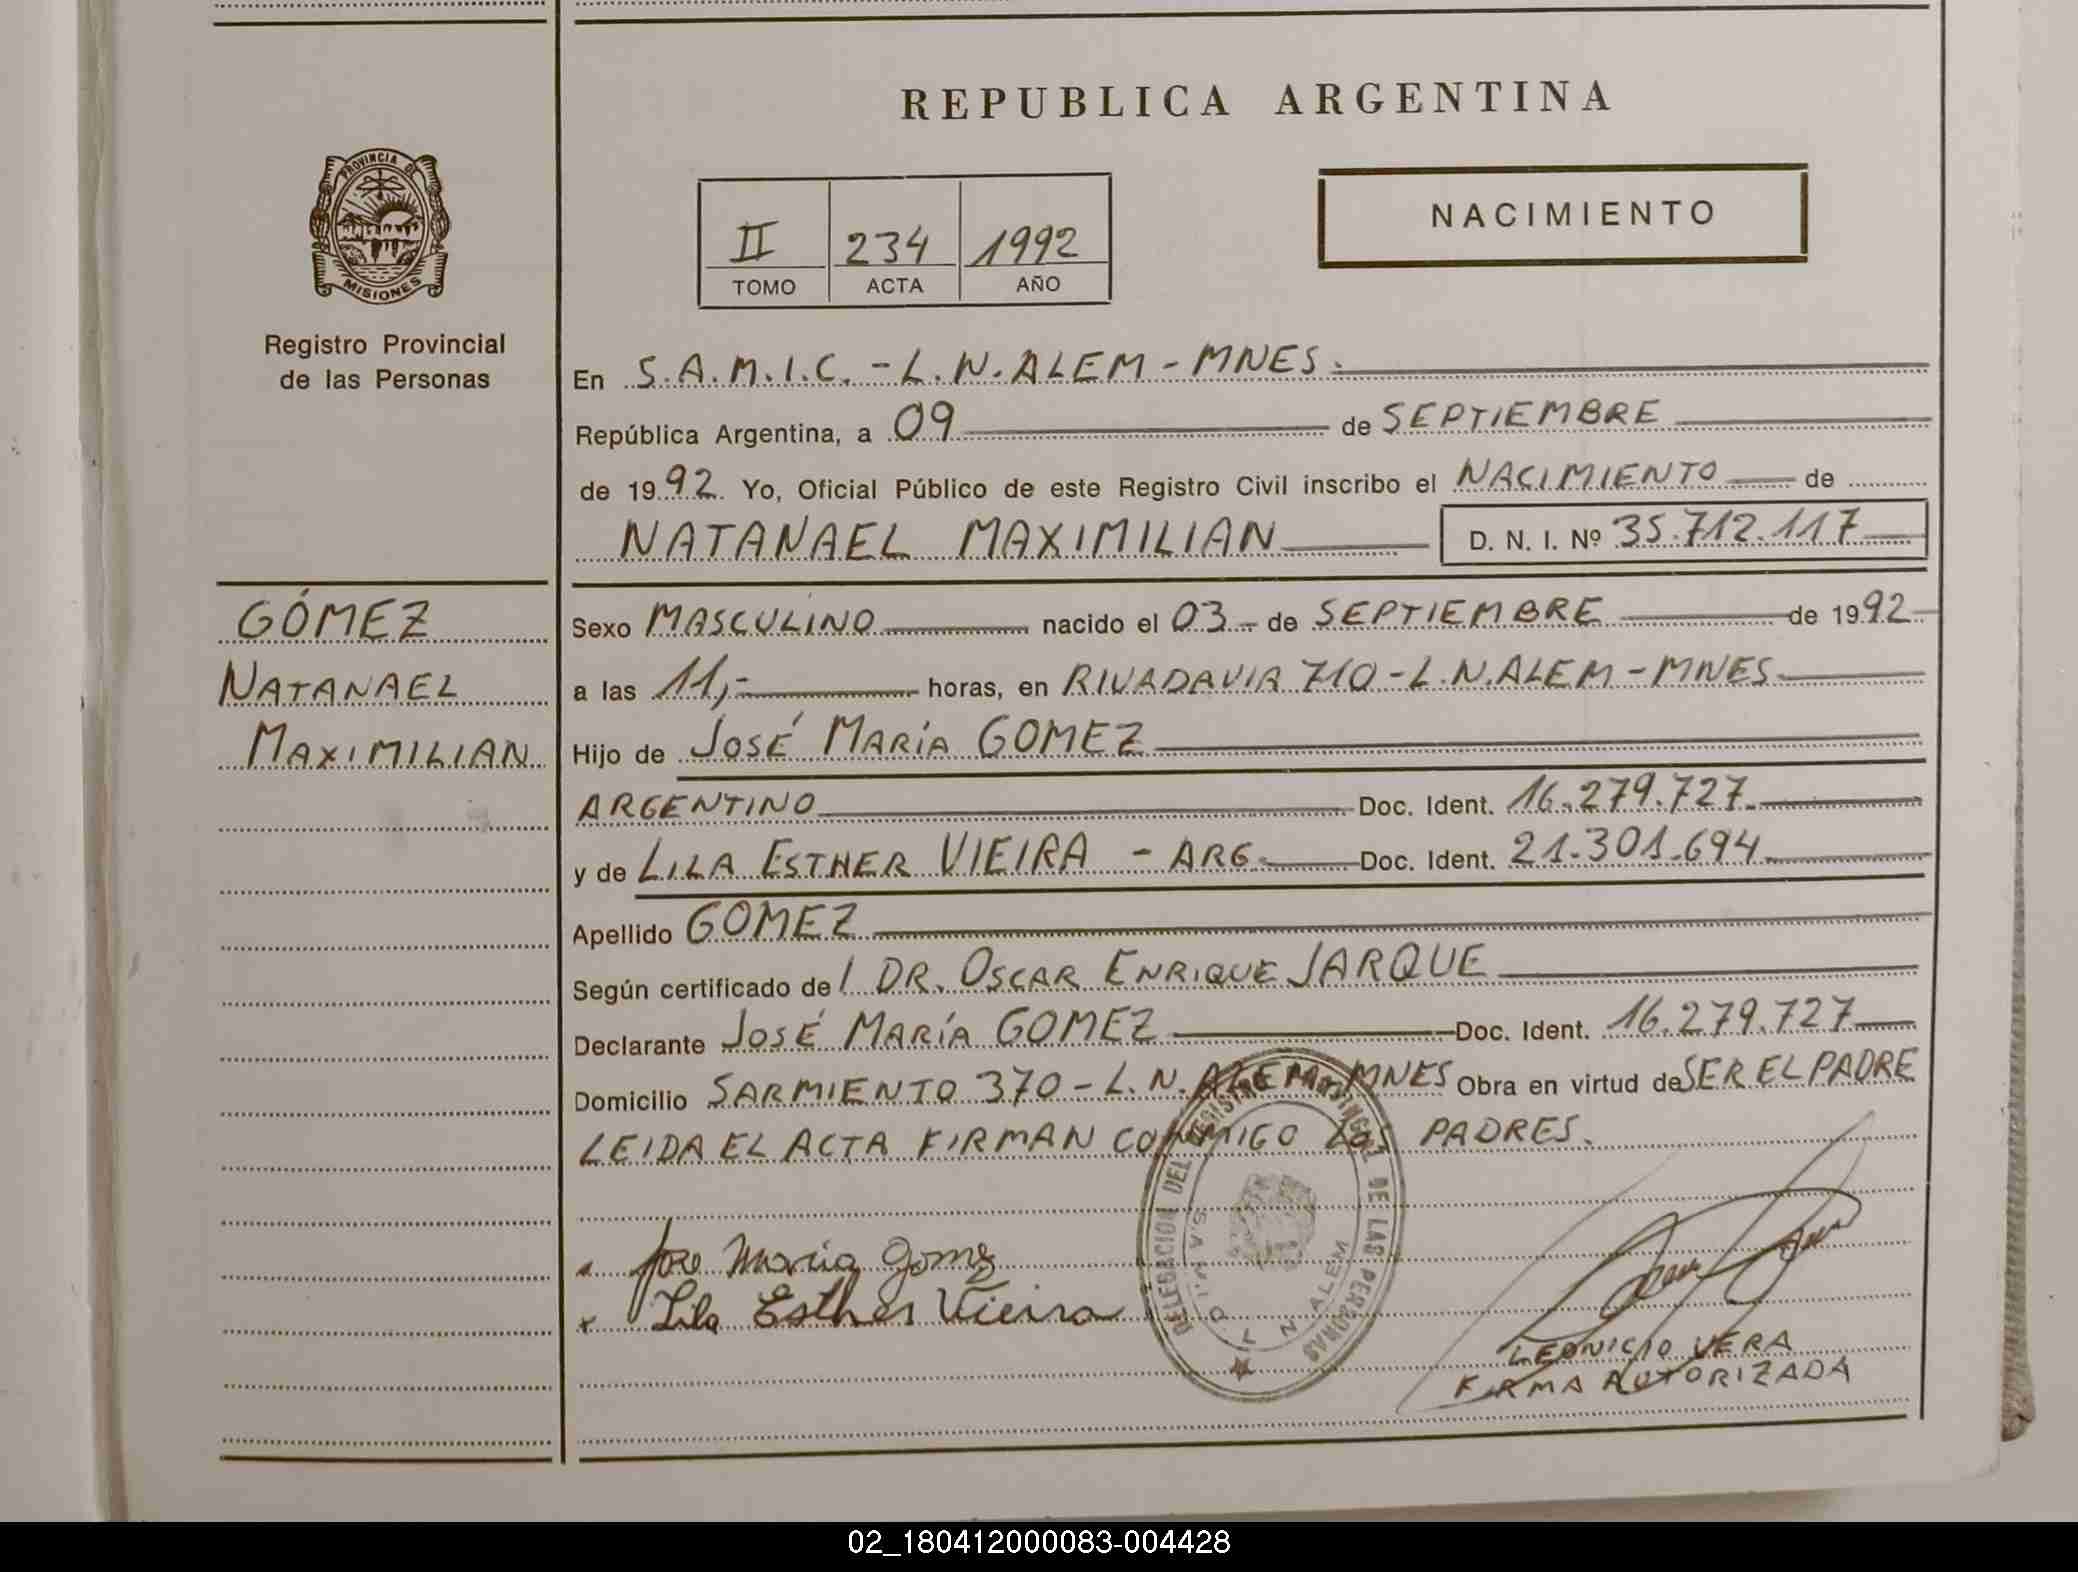 REPUBLICA ARGENTINA
PROVINCIA DE
MISIONES
Registro Provincial
de las Personas
II 234 1992
TOMO ACTA AÑO
NACIMIENTO
En S.A.M.I.C. - L.N.ALEM - MNES.
República Argentina, a 09 de SEPTIEMBRE
de 1992. Yo, Oficial Público de este Registro Civil inscribo el NACIMIENTO de
NATANAEL MAXIMILIAN D. N. I. Nº 35.712.117
GÓMEZ
NATANAEL
MAXIMILIAN
Sexo MASCULINO nacido el 03 - de SEPTIEMBRE de 1992
a las 11,- horas, en RIVADAVIA 710 - L.N.ALEM - MNES.
Hijo de JOSÉ MARÍA GOMEZ
ARGENTINO Doc. Ident. 16.279.727
y de LILA ESTHER VIEIRA - ARG. Doc. Ident. 21.301.694
Apellido GOMEZ
Según certificado del DR. OSCAR ENRIQUE JARQUE
Declarante JOSÉ MARÍA GOMEZ Doc. Ident. 16.279.727
Domicilio SARMIENTO 370 - L.N.ALEM - MNES Obra en virtud de SER EL PADRE
LEIDA EL ACTA FIRMAN CONMIGO LOS PADRES.
Jose Maria Gomez
x Lila Esther Vieira
DELEGACION DEL REGISTRO PROVINCIAL DE LAS PERSONAS
L N ALEM
LEONICIO VERA
FIRMA AUTORIZADA
02_180412000083-004428